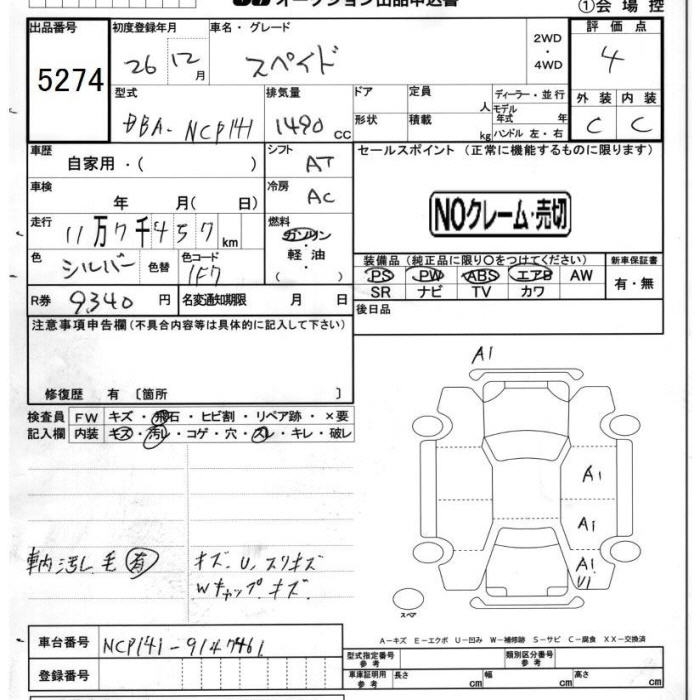 オークション出品申込書
①会場控
出品番号 初度登録年月 車名・グレード 評価点
5274 26 12月 スペイド 2WD・4WD 4
型式 排気量 ドア 定員 人 ディーラー・並行 外装 内装
モデル年式 年
DBA-NCP141 1490cc 形状 積載 kg ハンドル 左・右 C C
車歴 シフト セールスポイント (正常に機能するものに限ります)
自家用・( ) AT
車検 冷房
年 月( 日) AC NOクレーム・売切
走行 燃料
11万7千457km ガソリン
色 色替 色コード 軽油 装備品(純正品に限り○をつけてください) 新車保証書
シルバー 1F7 ( ) PS PW ABS エアB AW 有・無
SR ナビ TV カワ
R券 9,340円 名変通知期限 月 日 後日品
注意事項申告欄(不具合内容等は具体的に記入して下さい)
修復歴 有 〔箇所 〕
A1
検査員 FW キズ・飛石・ヒビ割・リペア跡・×要
記入欄 内装 キズ・汚レ・コゲ・穴・スレ・キレ・破レ
A1
A1
A1
U1
車内汚し毛有 キズ.U.スリキズ
Wキャップキズ
スペア
A-キズ E-エクボ U-凹み W-補修跡 S-サビ C-腐食 XX-交換済
車台番号 NCP141-9147461
型式指定番号 参考 類別区分番号 参考
登録番号 車庫証明用 参考 長さ cm 幅 cm 高さ cm